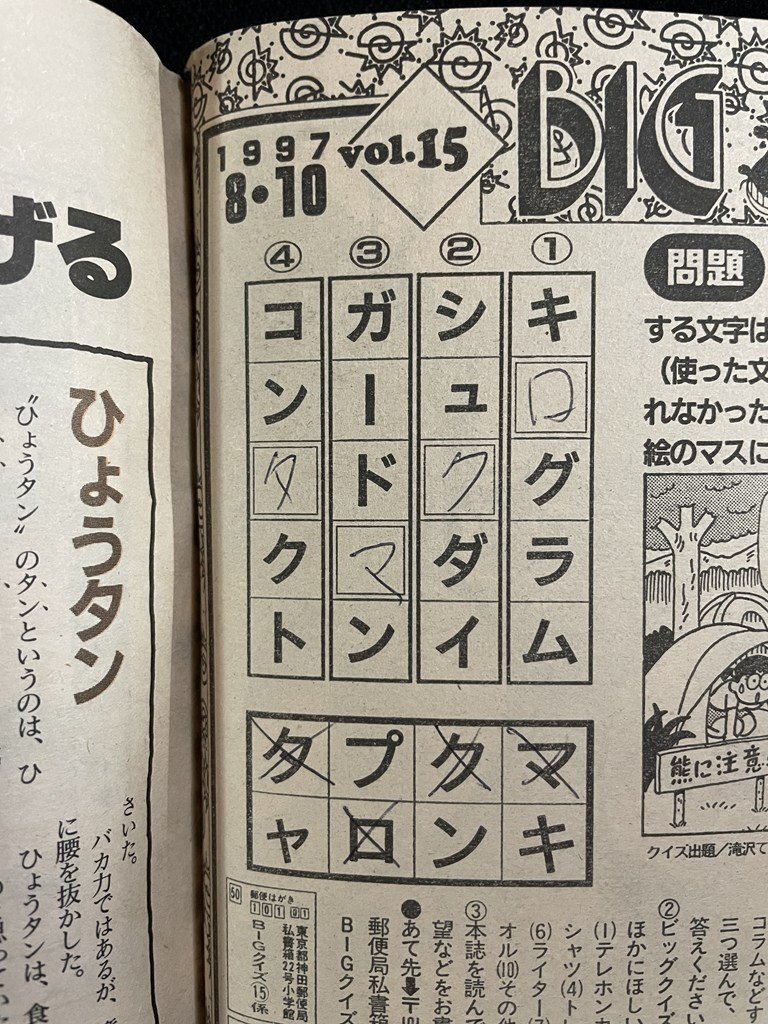 1997
8・10
vol.15
BIG
問題
する文字は
（使った文
れなかった
絵のマスに
①
キログラム
②
シュクダイ
③
ガードマン
④
コンタクト
マクプタ
キンロャ
熊に注意
クイズ出題／滝沢て
コラムなどす
三つ選んで、
答えください
②ビッグクイズ
ほかにほしい
(1)テレホンカ
シャツ(4)ト
(6)ライター(7)
オル(10)その他
③本誌を読んで
望などをお書
●あて先➡〒101
郵便局私書箱
BIGクイズ
50
郵便はがき
101 01
東京都神田郵便局
私書箱22号小学館
BIGクイズ⑮係
げる
ひょうタン
〝ひょうタン〟のタンというのは、ひ
さいた。
バカ力ではあるが、
に腰を抜かした。
ひょうタンは、食